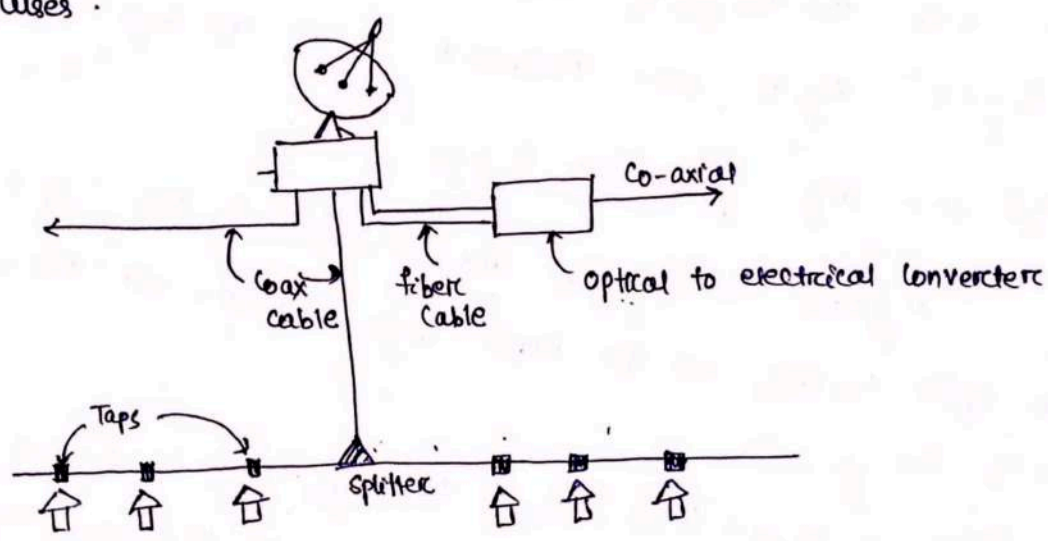 uses .
Co-axial
Coax
cable
fiber
Cable
optical to electrical Converter
Taps
splitter